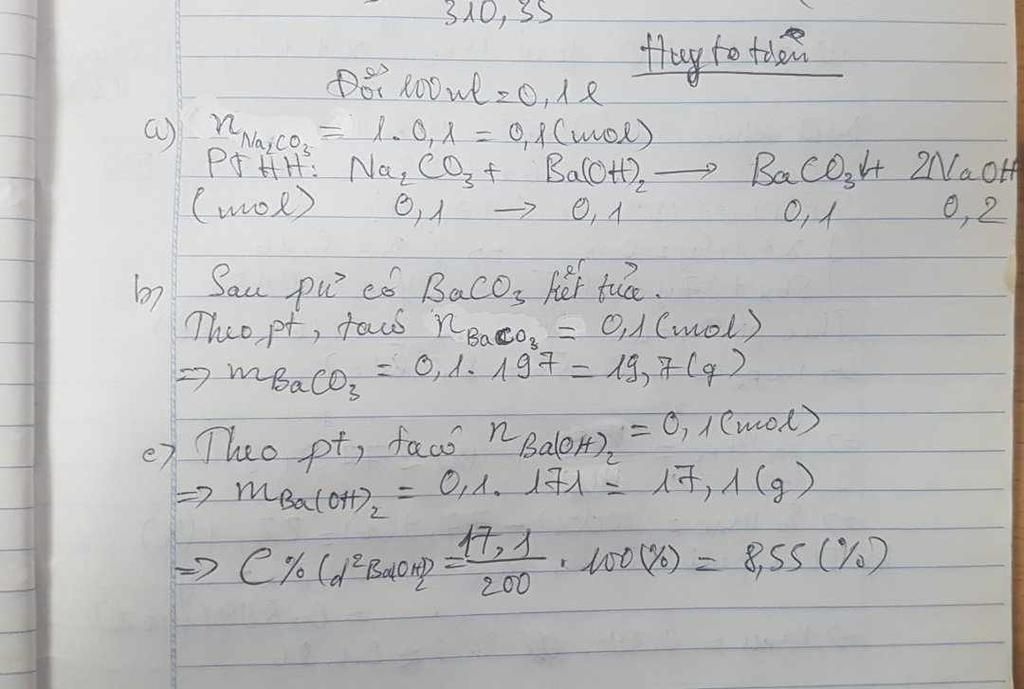 310,35
Huy to tiền
Đổi 100ml = 0,1l
a) nNa₂CO₃ = 1.0,1 = 0,1(mol)
PTHH: Na₂CO₃ + Ba(OH)₂ → BaCO₃↓ + 2NaOH
(mol) 0,1 → 0,1 0,1 0,2
b) Sau pứ có BaCO₃ kết tủa.
Theo pt, ta có nBaCO₃ = 0,1(mol)
=> mBaCO₃ = 0,1.197 = 19,7(g)
c) Theo pt, ta có nBa(OH)₂ = 0,1(mol)
=> mBa(OH)₂ = 0,1.171 = 17,1(g)
=> C%(d²Ba(OH)₂) = 17,1/200 . 100(%) = 8,55(%)